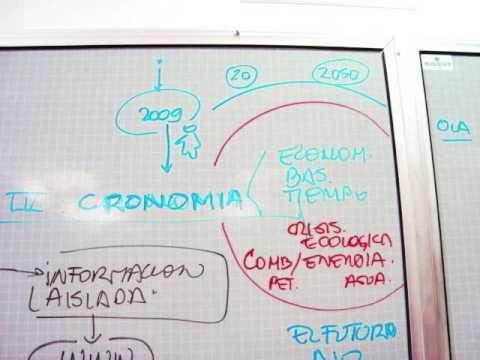 2009
20
2050
OLA
ECONOM.
BAS.
TIEMPO
CRONOMIA
CRISIS.
ECOLOGICA
COMB/ENERGIA.
PET. AGUA.
INFORMACION
AISLADA.
WWW
EL FUTURO